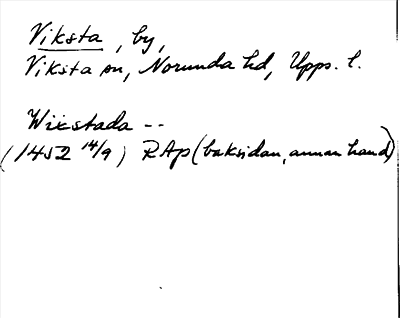 Viksta, by,
Viksta sn, Norunda hd, Upps. l.
Wikstada --
(1452 14/9) RAp (baksidan, annan hand)